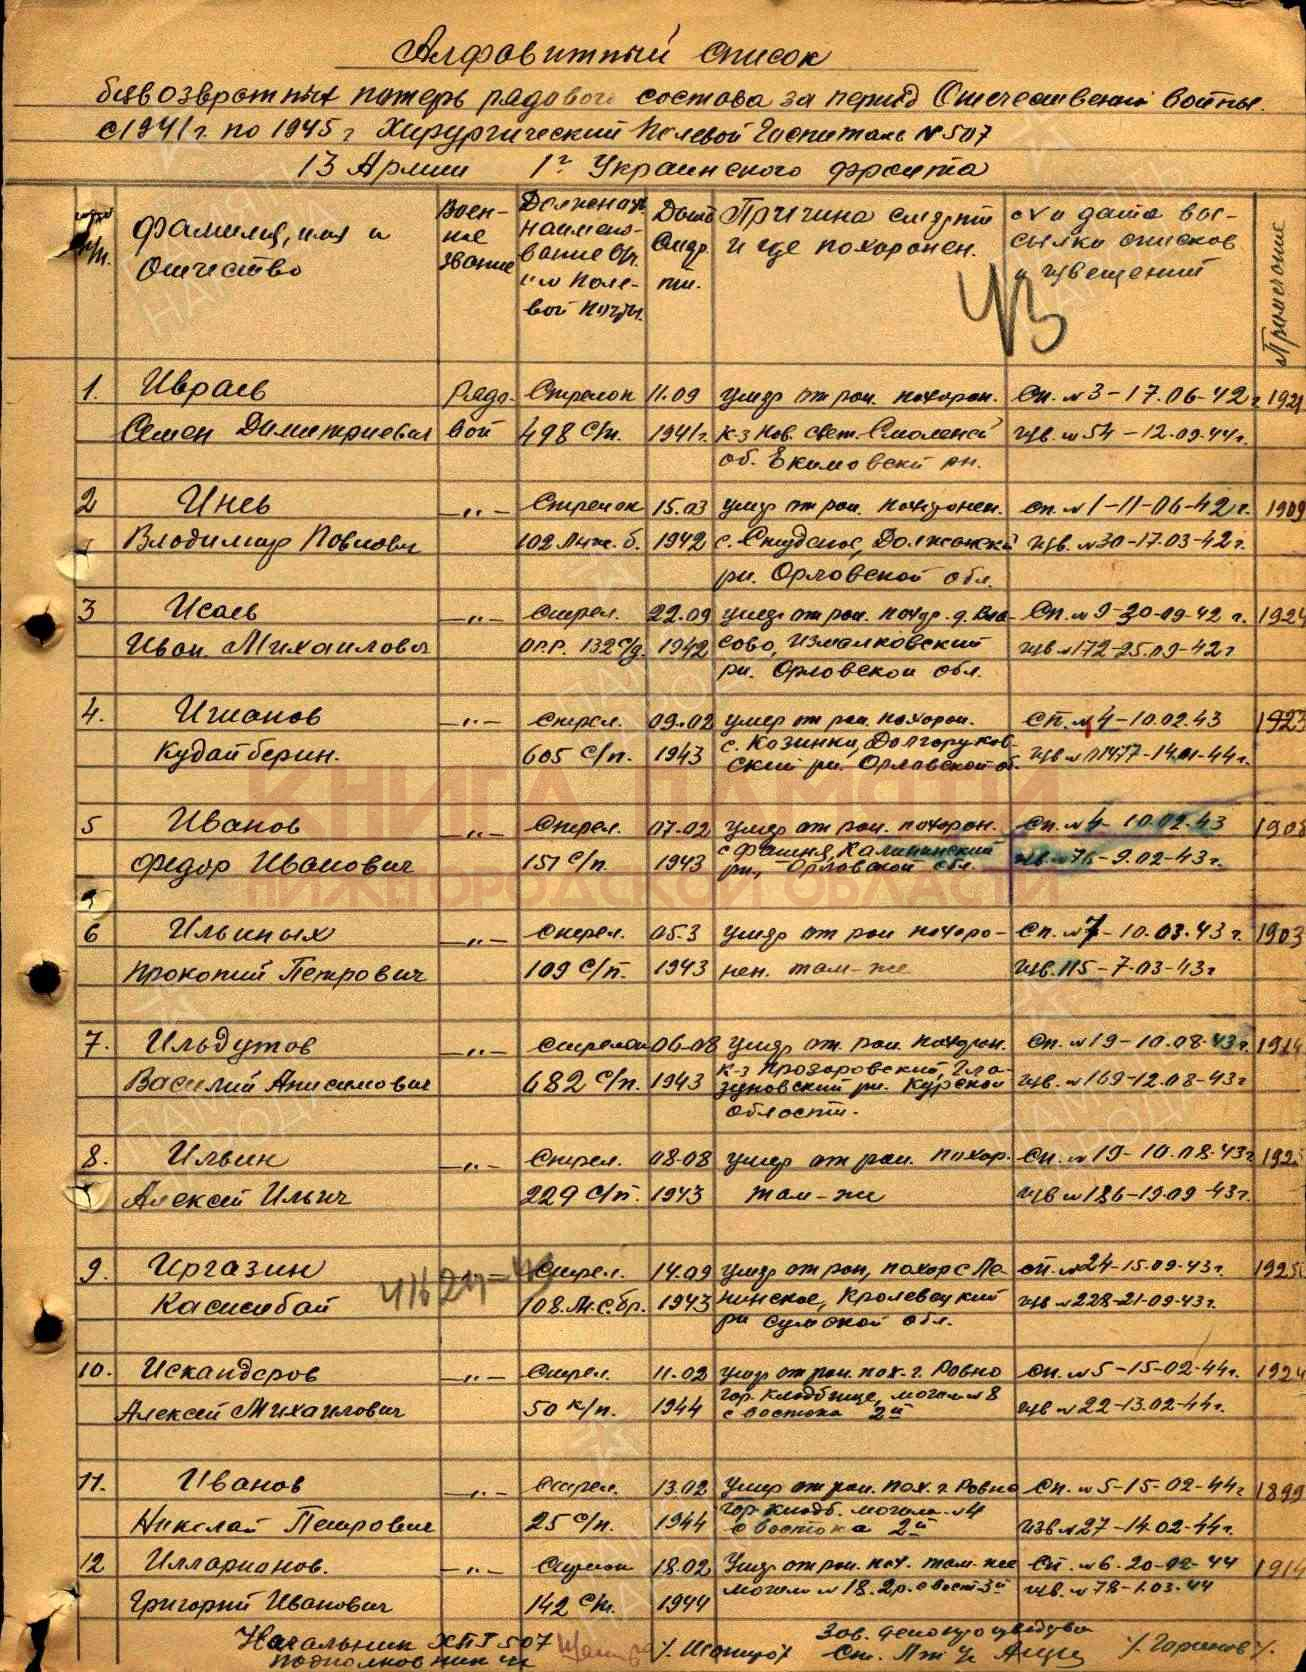 Алфавитный список
безвозвратных потерь рядового состава за период Отечественной войны
с 1941 г. по 1945 г Хирургический Полевой Госпиталь № 507
13 Армии 1г Украинского фронта
Фамилия, имя и Отчество
Воен-ное звание
Должность наимено-вание в/ч. или Поле-вой почты.
Дата Смер-ти.
Причина смерти и где похоронен.
и дата вы-сылки списков и извещений
Примечание
ЧЗ
1. Ивраев Рядо- Стрелок 11.09 умер от ран. похорон. Сп. № 3-17.06-42 г 1921
Семен Димитриевич вой 498 с/п. 1941 г. к-з Нов. свет. Смоленс изв. № 54-12.09.44 г.
об. Екимовский рн.
2 Инев -"- Стрелок 15.03 умер от ран. похоронен. Сп. № 1-11-06-42 г. 1909
Владимир Павлович 102 Инж. б. 1942 с. Студеное, Должанский изв. № 30-17.03-42 г.
рн. Орловской обл.
3 Исаев -"- Стрел. 22.09 умер от ран. похор. д. Вла- Сп. № 9-30-09-42 г. 1924
Иван Михаилович О.Р.Р. 132 с/д. 1942 сово, Измалковский изв № 172-25.09-42 г
рн. Орловской обл.
4. Игманов -"- Стрел. 09.02 умер от ран. похорон. Сп. № 4-10.02.43 1923
Кудайберин. 605 с/п. 1943 с. Козинки, Долгоруков-ский рн. Орловской об.
5 Иванов -"- Стрел. 07.02 умер от ран. похорон. Сп. № 4-10.02.43 1908
Федор Иванович 151 с/п. 1943 с Фашня, Калининский рн, Орловской обл. изв. № 76-9.02-43 г.
КНИГА ПАМЯТИ
НИЖЕГОРОДСКОЙ ОБЛАСТИ
6 Ильиных -"- Стрел. 05.3 умер от ран похоро- Сп. № 7-10.03.43 г. 1903
Прокопий Петрович 109 с/п. 1943 нен. там-же изв. 115-7.03-43 г
7. Ильдутов -"- Стрелок 06-08 умер от ран. похорон. Сп. № 19-10.08.43 г. 1914
Василий Анисимович 682 с/п. 1943 к-з Прозоровский, Гла-зуновский рн. Курской изв. № 169-12.08-43 г
области.
8. Ильин -"- Стрел. 08.08 умер от ран. похор. Сп. № 19-10.08-43 г
Алексей Ильич 229 с/п. 1943 там-же изв № 186-19.09-43 г.
9. Иргазин Стрел. 14.09 умер от ран, похор с Ле- Сп. № 24-15.09-43 г. 1925
Касимбай 108. М.с.бр. 1943 нинское, Кролевецкий изв № 228-21-09-43 г.
рн Сумской обл.
10. Искандеров -"- Стрел. 11.02 умер от ран. пох. г. Ровно Сп. № 5-15-02-44 г. 1924
Алексей Михаилович 50 к/п. 1944 гор. кладбище, могила № 8 с востока 2й изв № 22-13.02-44 г.
11. Иванов -"- Стрел. 13.02 умер от ран. пох. г. Ровно Сп. № 5-15-02-44 г 1899
Николай Петрович 25 с/п. 1944 гор. кладб. могила № 4 с востока 2й изв № 27-14.02-44 г.
12 Илларионов. -"- Стрелок 18.02 Умер от ран. пох. там-же Сп. № 6.20-02-44 1914
Григорий Иванович 142 с/п. 1944 могила № 18. 2 р. с вост 3й изв. № 78-1.03.44
Начальник ХПГ 507 Зав. делопроизводства
подполковник м/с Ст. Л-т /Горинов/.